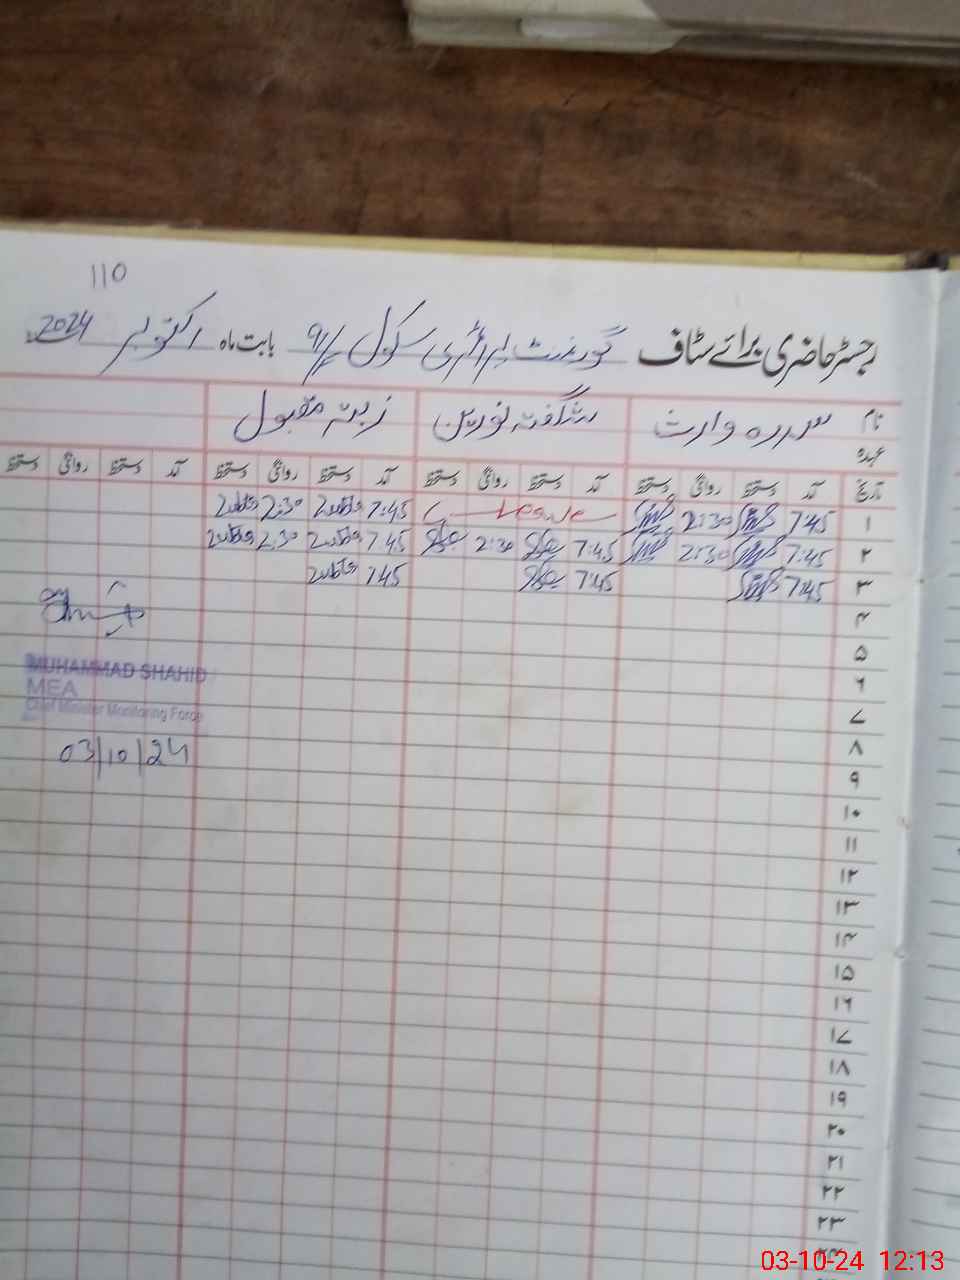 110
رجسٹر حاضری برائے سٹاف گورنمنٹ پرائمری سکول 9/ بابت ماہ اکتوبر 2024
نام سدرہ وارث شگفتہ نورین زبدہ مقبول
عہدہ
تاریخ آمد دستخط روانگی دستخط آمد دستخط روانگی دستخط آمد دستخط روانگی دستخط آمد دستخط روانگی دستخط
۱ 7:45 2:30 C-Leave 7:45 2:30
۲ 7:45 2:30 7:45 2:30 7:45 2:30
۳ 7:45 7:45 7:45
۴
۵
۶
۷
۸
۹
۱۰
۱۱
۱۲
۱۳
۱۴
۱۵
۱۶
۱۷
۱۸
۱۹
۲۰
۲۱
۲۲
۲۳
MUHAMMAD SHAHID
MEA
Chief Minister Monitoring Force
03/10/24
03-10-24 12:13